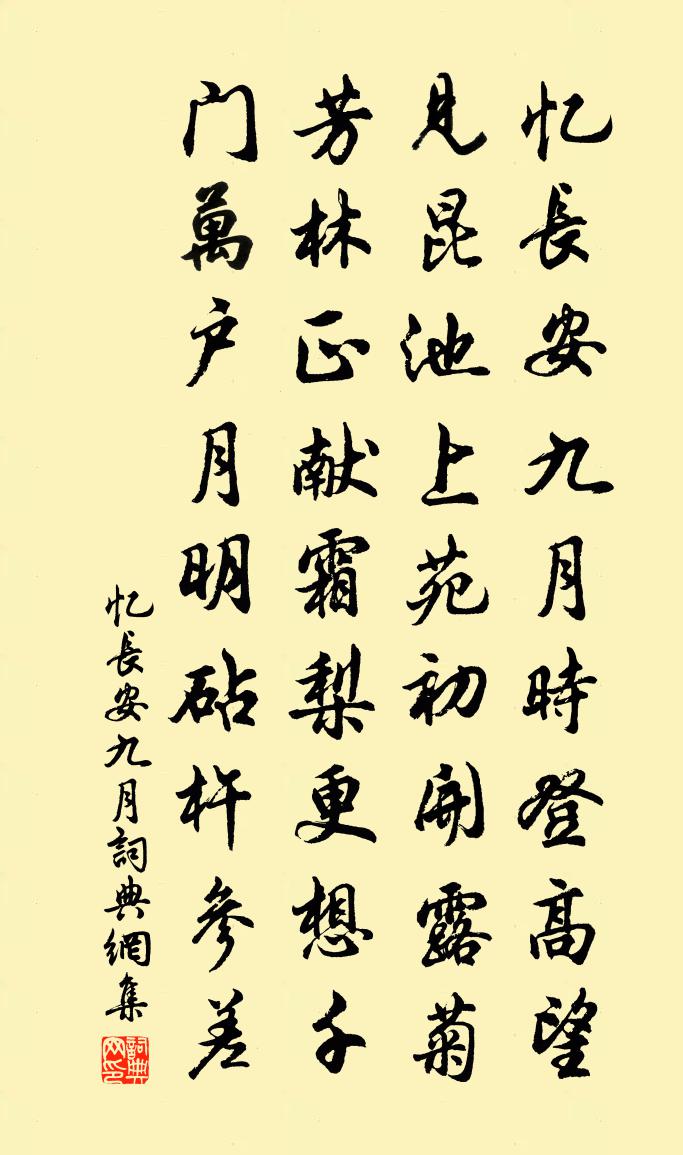 忆長安九月時登高望
見昆池上苑初開露菊
芳林正献霜梨更想千
门萬户月明砧杵參差
忆長安九月詞典網集
詞典网印